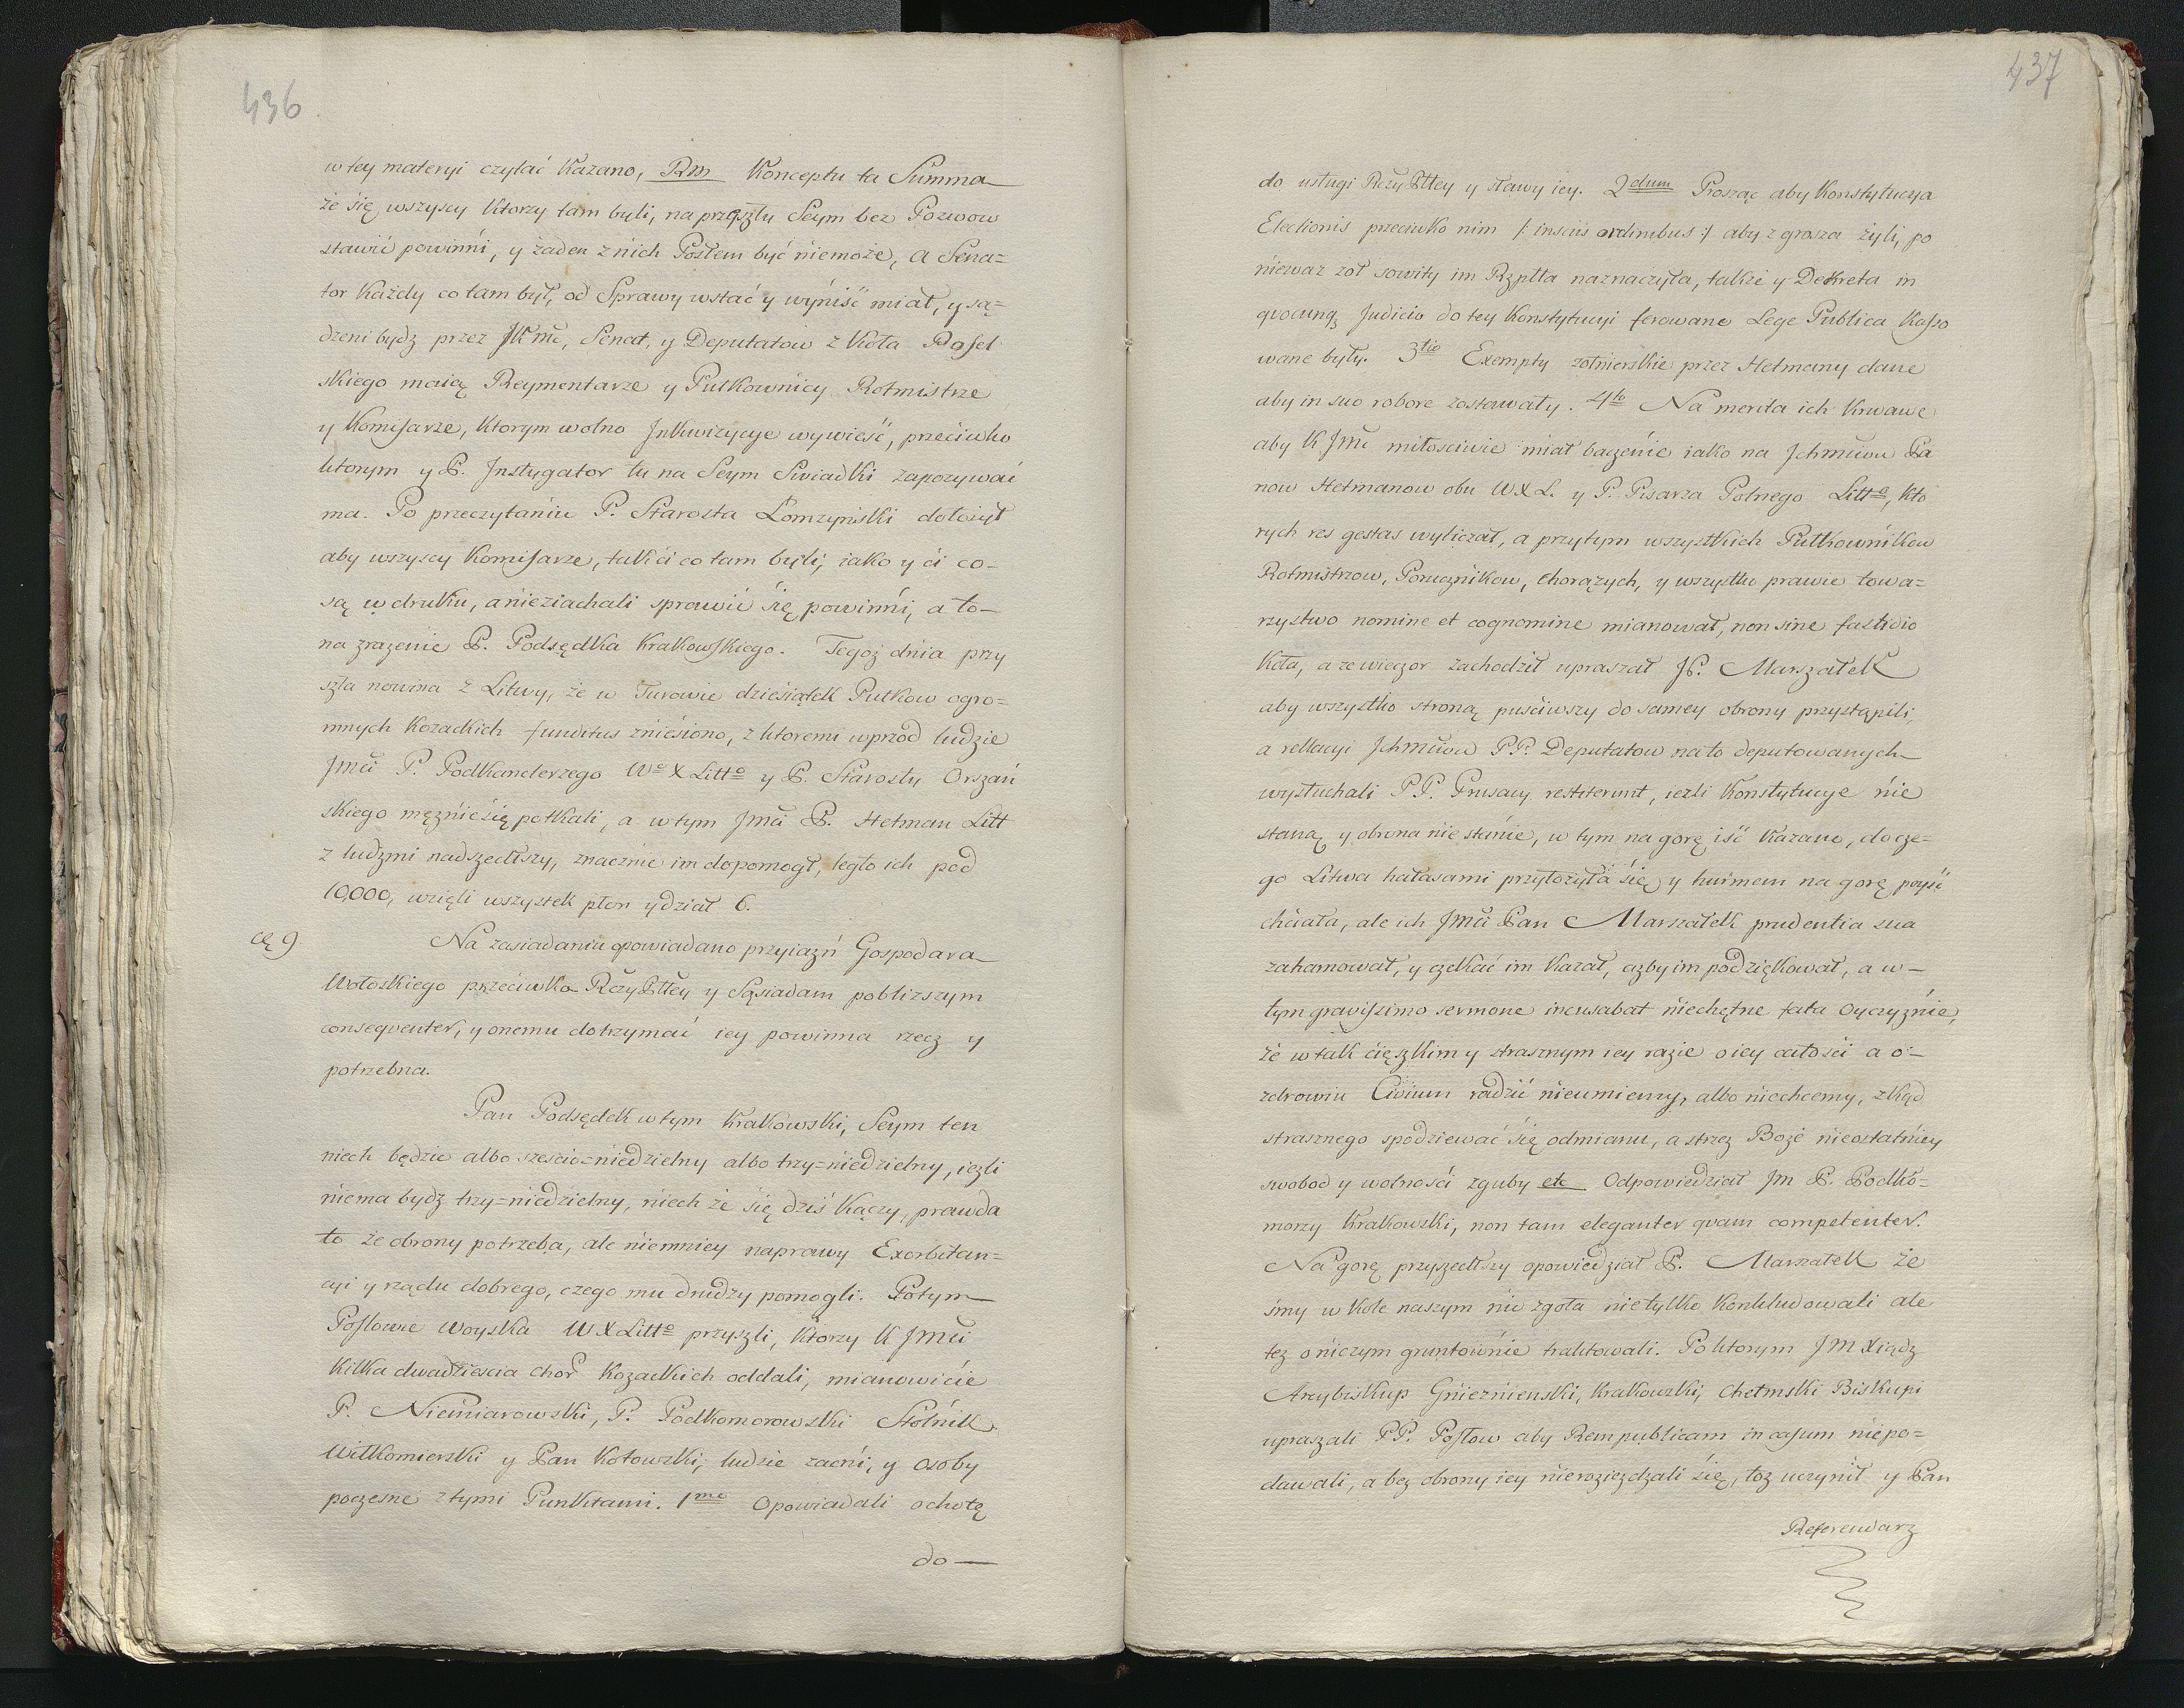 436
w tey materyi czytać Kazano, Rm Konceptu ta Summa
że się wszyscy Ktorzy tam byli, na przyszły Seym bez Pozwow
stawić powinni, y żaden z nich Posłem być niemoże, a Sena=
tor Każdy co tam był, od Sprawy wstać y wyniść miał, y są=
dzeni bydz przez JKmc, Senat, y Deputatow z Koła Posel
skiego maią Reymentarze y Pułkownicy Rotmistrze
y Komisarze, Ktorym wolno Jnkwizycye wywieść, przeciwko
ktorym y P. Jnstygator tu na Seym Swiadki zapozywać
ma. Po przeczytaniu P. Starosta Łomzyński dołożył
aby wszyscy Komisarze, tak ci co tam byli, iako y ci co-
są w druku, a nieziachali sprawić się powinni, a to-
na zrażenie P. Podsędka Krakowskiego. Tegoż dnia przy
szła nowina z Litwy, że w Turowie dziesiątek Pułkow ogro=
mnych Kozackich funditus zniesiono, z ktoremi wprzod ludzie
Jmci P. Podkanclerzego We X Litto y P. Starosty Orszań
skiego mężnie się potkali, a wtym Jmci P. Hetman Litt
z ludzmi nadszedłszy, znacznie im dopomogł, legło ich pod
10,000, wzięli wszystek plon y dział 6.
9 Na zasiadaniu opowiadano przyiazń Gospodara
Wołoskiego przeciwko RzyPtley y Sąsiadam poblizszym
conseqventer, y onemu dotrzymać iey powinna rzecz y
potrzebna.
Pan Podsędek w tym Krakowski, Seym ten
niech będzie albo sześcio=niedzielny albo trzy=niedzielny, ieżli
niema bydz trzy=niedzielny, niech że się dziś Kączy, prawda
to że obrony potrzeba, ale niemniey naprawy Exorbitan=
cyi y rządu dobrego, czego mu drudzy pomogli. Potym
Posłowie Woyska WXLitto przyszli, Ktorzy K Jmci
Kilka dwadzieścia chor Kozackich oddali, mianowicie
P. Niemiarowski, P. Podkomorowski Stolnik
Wiłkomierski y Pan Kotowski, ludzie zacni, y osoby
poczesne z tymi Punktami. 1mo Opowiadali ochotę
do —
437
do usługi RzyPtley y sławy iey. 2dum Prosząc aby Konstytucya
Electionis przeciwko nim /: insciis ordinibus :/ aby z grosza żyli, po
nieważ żoł sowity im Rzptta naznaczyła, także y Dekreta in
qvocunq; Judicio do tey Konstytucyi ferowane Lege Publica Kasso
wane były. 3tio Exempty żołnierskie przez Hetmany dane
aby in suo robore zostawały. 4to Na merita ich Krwawe
aby K Jmć miłosciwie miał baczenie iako na Jchmciow Pa
now Hetmanow obu WXL. y P. Pisarza Polnego Litto, Kto
rych res gestas wyliczał, a przytym wszystkich Pułkownikow
Rotmistrzow, Porucznikow, Chorążych, y wszystko prawie towa=
rzystwo nomine et cognomine mianował, non sine fastidio
Koła, a ze wieczor zachodził upraszał JP. Marszałek
aby wszystko stroną puściwszy do samey obrony przystąpili,
a rellacyi Jchmciow PP. Deputatow na to deputowanych
wysłuchali PP. Prusacy restiterunt, ieżli Konstytucye nie
staną y obrona nie stanie, w tym na gorę iść Kazano, do cze=
go Litwa hałasami przyłożyła się y hurmem na gorę pojść
chciała, ale ich Jmci Pan Marszałek prudentia sua
zahamował, y czekać im Kazał, ażby im podziękował, a w-
tym gravissimo sermone incusabat niechętne fata Oyczyznie,
że w tak cięszkim y strasznym iey razie o iey całości a o-
zdrowiu Civium radzić nieumiemy, albo niechcemy, zkąd
strasznego spodziewać się odmianu, a strzeż Boże nieostatniey
swobod y wolności zguby etc Odpowiedział Jm P. Podko=
morzy Krakowski, non tam eleganter qvam competenter.
Na gorę przyszedłszy opowiedział P. Marszałek że
śmy w Kole naszym nic zgoła nietylko Konkludowali ale
też o niczym gruntownie traktowali. Po ktorym Jm Xiądz
Arcybiskup Gnieznienski, Krakowski, Chełmski Biskupi
upraszali PP. Posłow aby Rempublicam in casum niepo=
dawali, a bez obrony iey nierozieżdzali się, toż uczynił y Pan
Referendarz